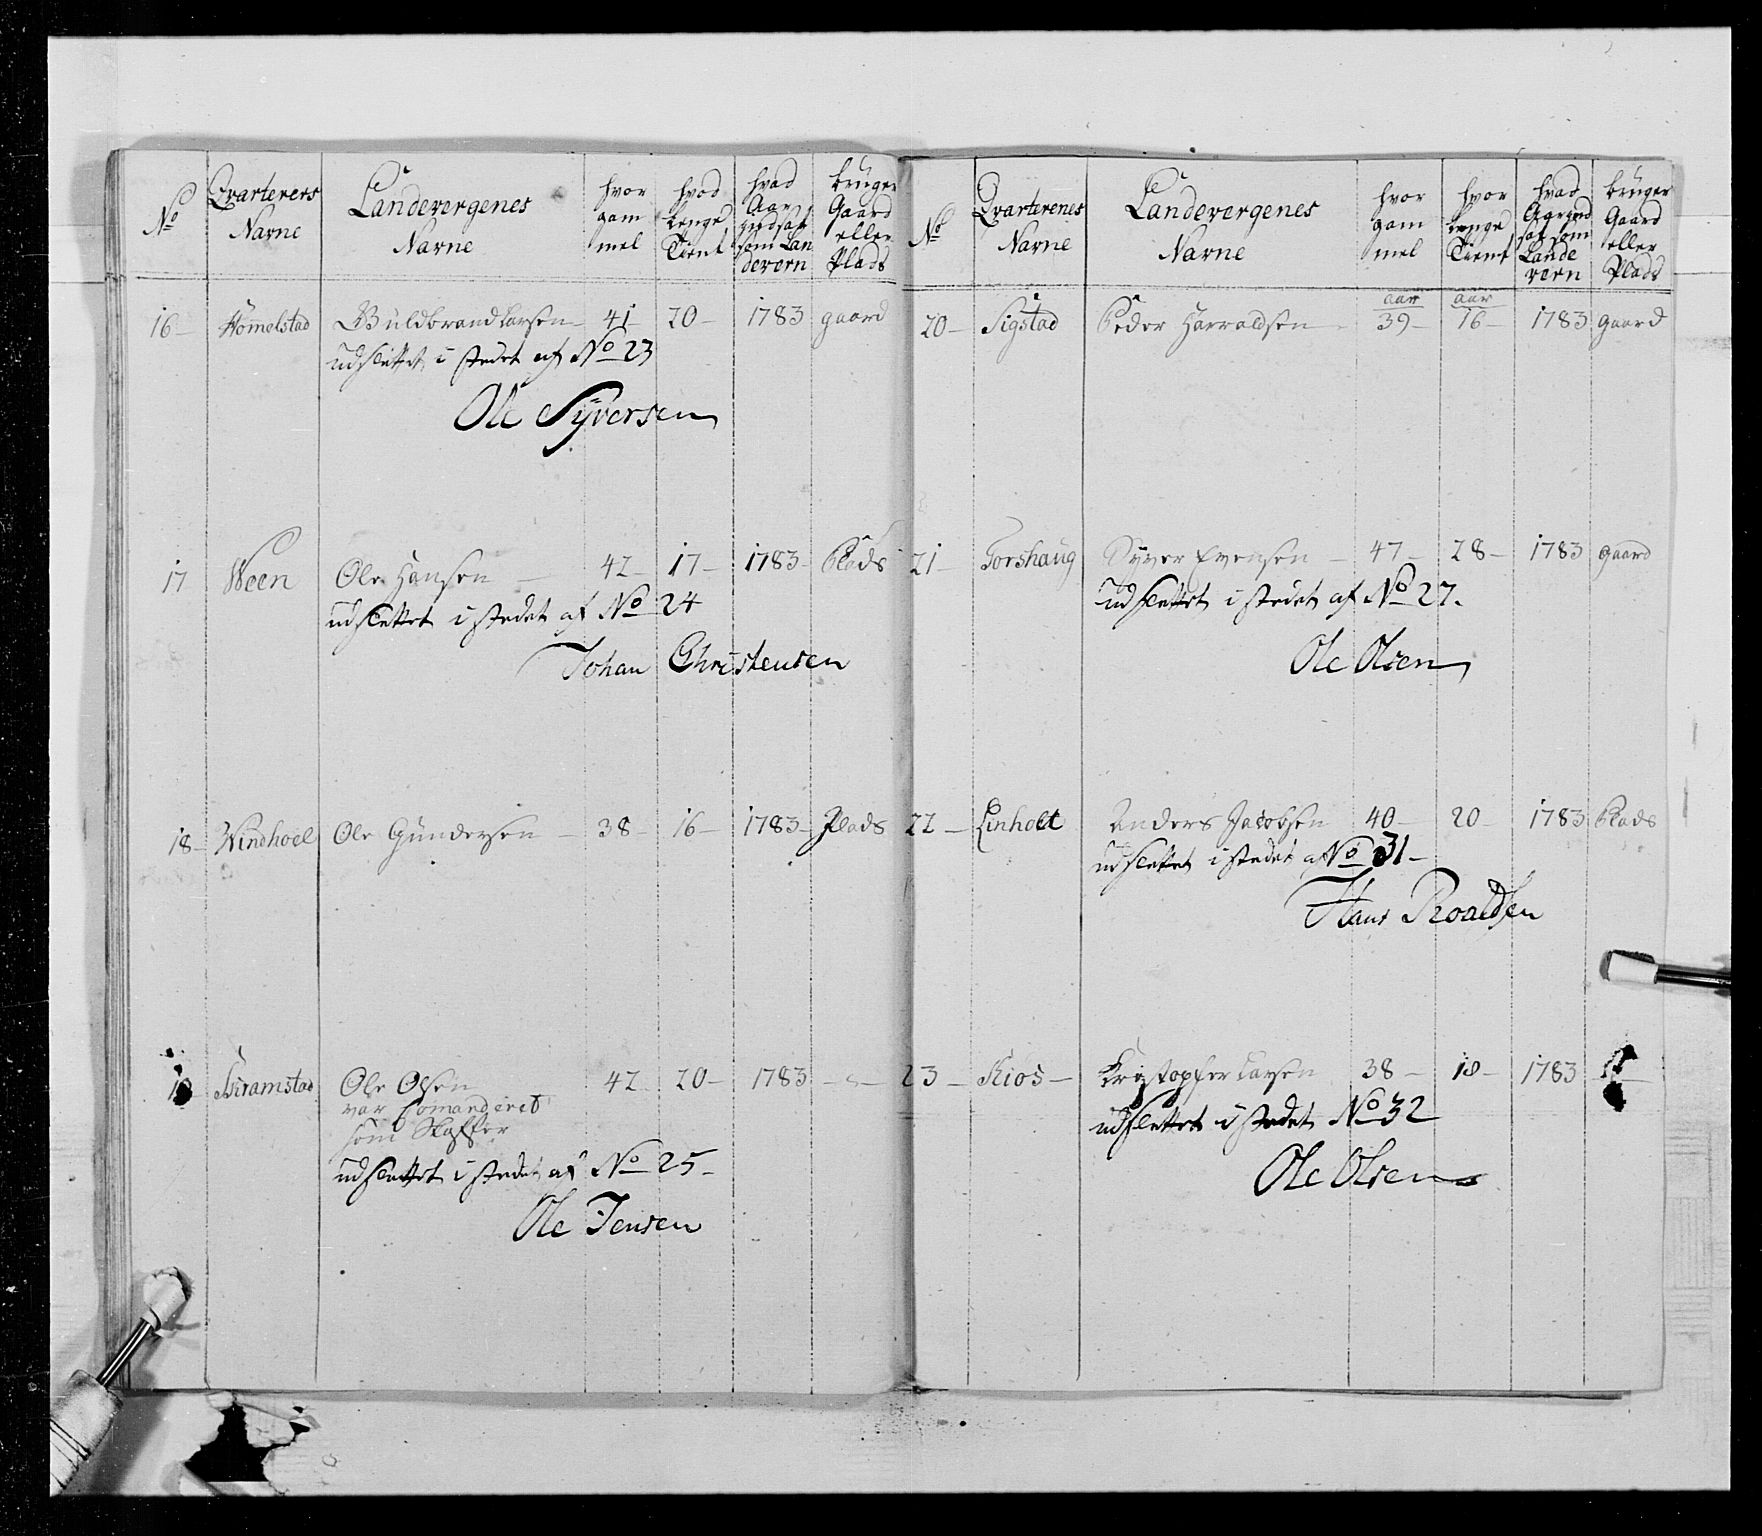 No
Qvarterers Navne
Landevergenes Navne
hvor gam mel
hvod lenge Tient
hvad Aar
som Lan devern
bruger Gaard eller Plads
16 – Homelstad Guldbrand Larsen – 41 – 20 – 1783 gaard
udslettet i stedet af No 23
Ole Syversen
17 Ween Ole Hansen – 42 – 17 – 1783 – Plads
udslettet i stedet af No 24
Johan Christensen
18 – Windhoel Ole Gundersen – 38 – 16 – 1783 – Plads
19 Skramstad Ole Olsen 42 20 – 1783 –
var Comanderet
som Skaffer
udslettet i stedet af No 25 –
Ole Jensen
No
Qvarterenes Navne
Landevergenes Navne
hvor gam mel
hvor lenge Tient
hvad
sat som Lande vern
bruger Gaard eller Plads
aar aar
20 – Sigstad Peder Harraldsen – 39 – 16 – 1783 gaard
21 – Torshaug Syver Evensen – 47 – 28 – 1783 gaard
udslettet i stedet af No 27.
Ole Olsen
22 – Linholt Anders Jacobsen 40 – 20 1783 Plads
udslettet i stedet af No 31 –
Hans Roaldsen
23 – Kiøs – Kristopfer Larsen 38 – 18 – 1783
udslettet i stedet No 32
Ole Olsen